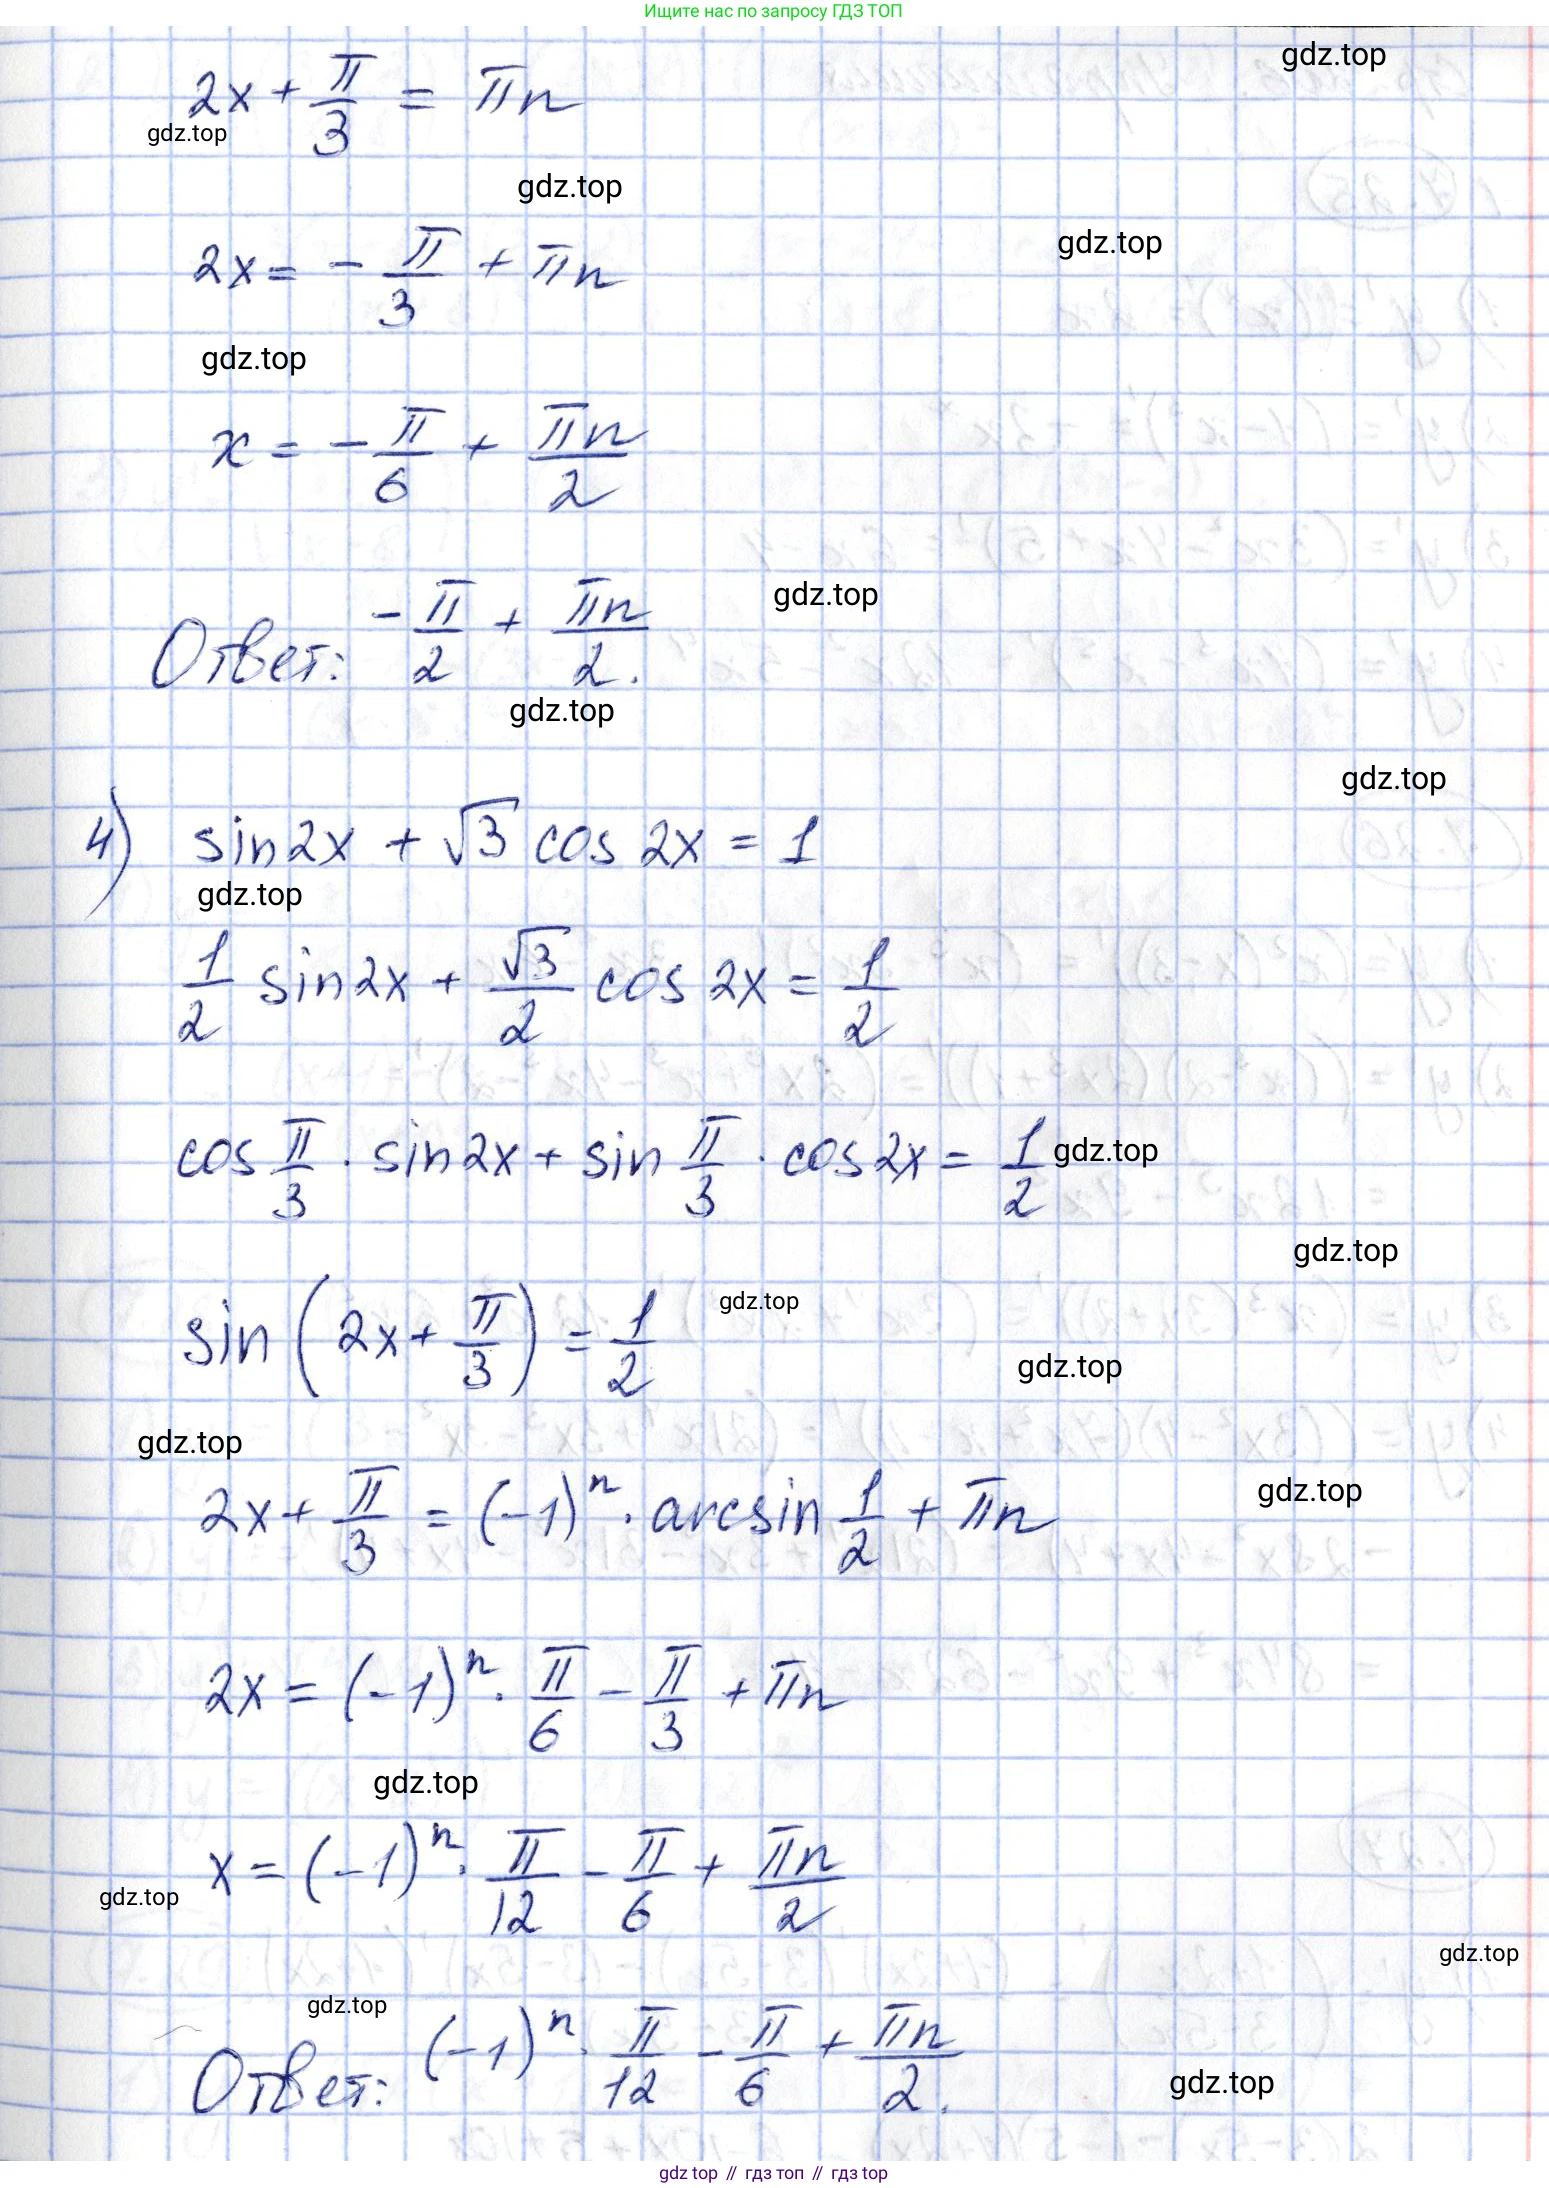 Ищите нас по запросу ГДЗ ТОП
gdz.top
2x + π/3 = πn
gdz.top
gdz.top
gdz.top
2x = - π/3 + πn
gdz.top
x = - π/6 + πn/2
gdz.top
Ответ: - π/2 + πn/2.
gdz.top
gdz.top
4) sin2x + √3 cos 2x = 1
gdz.top
1/2 sin2x + √3/2 cos 2x = 1/2
cos π/3 · sin2x + sin π/3 · cos2x = 1/2
gdz.top
gdz.top
gdz.top
sin (2x + π/3) = 1/2
gdz.top
gdz.top
gdz.top
2x + π/3 = (-1)^n · arcsin 1/2 + πn
2x = (-1)^n · π/6 - π/3 + πn
gdz.top
x = (-1)^n · π/12 - π/6 + πn/2
gdz.top
gdz.top
gdz.top
Ответ: (-1)^n · π/12 - π/6 + πn/2.
gdz.top
gdz top // гдз топ // гдз top